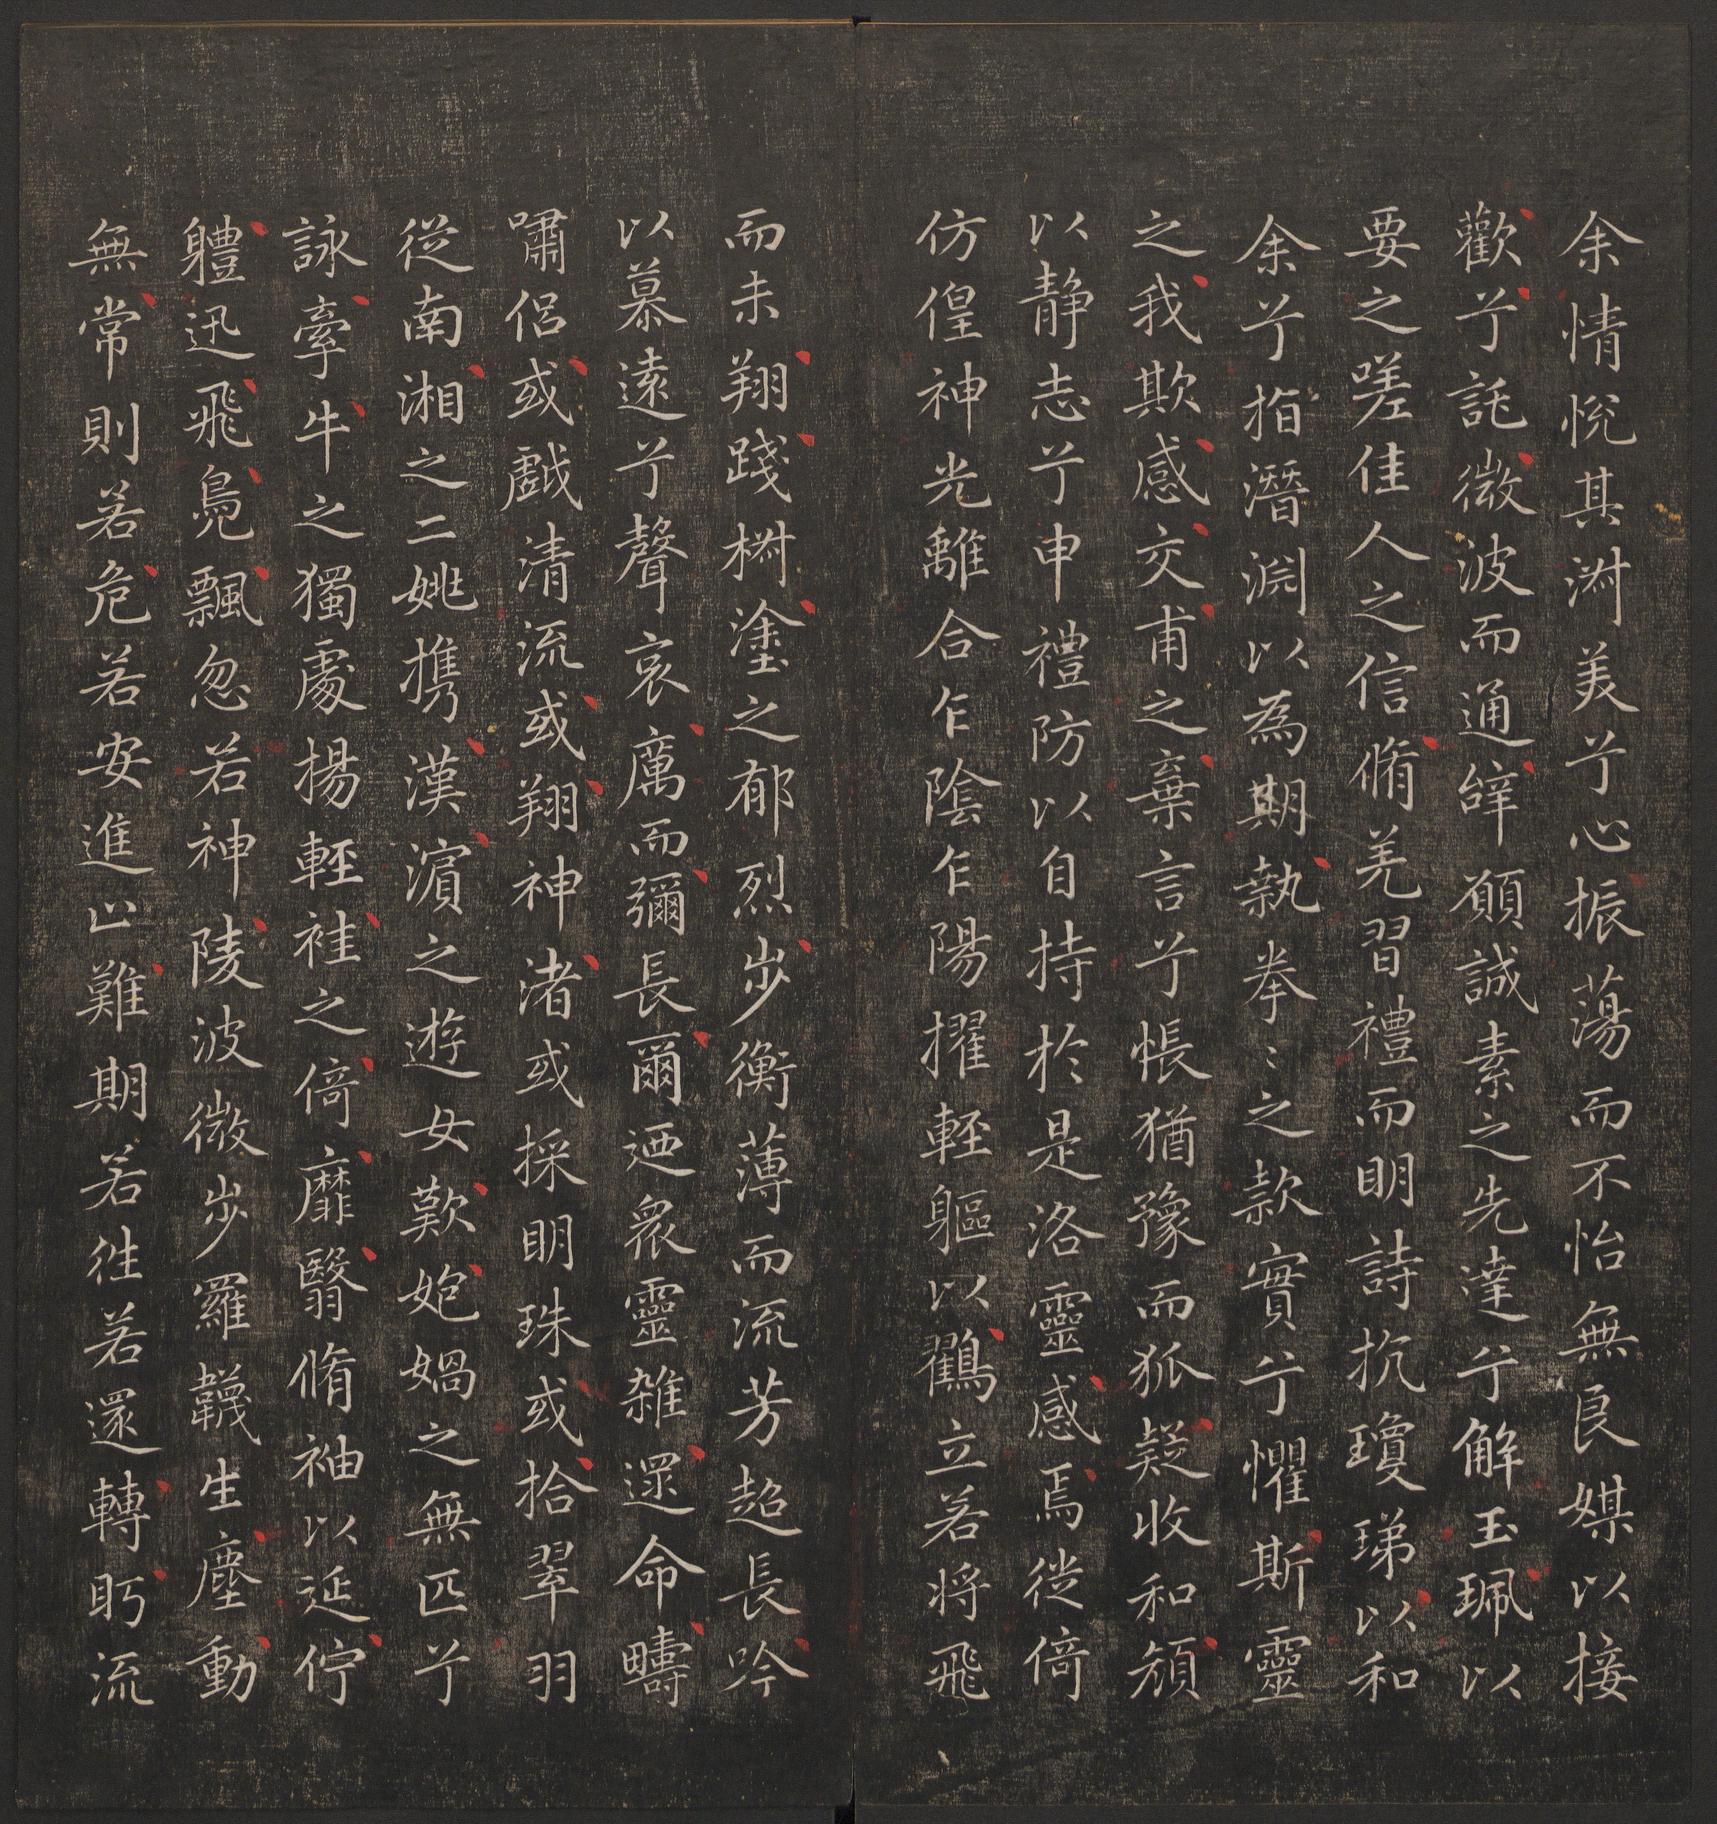 余情悅其淑美兮心振蕩而不怡無良媒以接
歡兮託微波而通辝願誠素之先達兮解玉珮以
要之嗟佳人之信脩羌習禮而明詩抗瓊珶以和
余兮指潛淵以為期執拳〻之款實兮懼斯靈
之我欺感交甫之棄言兮悵猶豫而狐疑收和顏
以静志兮申禮防以自持於是洛靈感焉徙倚
仿偟神光離合乍陰乍陽擢輕軀以鸖立若将飛
而未翔踐椒塗之郁烈步衡薄而流芳超長吟
以慕遠兮聲哀厲而彌長爾迺衆靈雜遝命疇
嘯侶或戲清流或翔神渚或採明珠或拾翠羽
從南湘之二姚攜漢濵之遊女歎匏媧之無匹兮
詠牽牛之獨處揚輕袿之倚靡翳脩袖以延佇
軆迅飛鳧飄忽若神陵波微步羅韈生塵動
無常則若危若安進止難期若往若還轉眄流